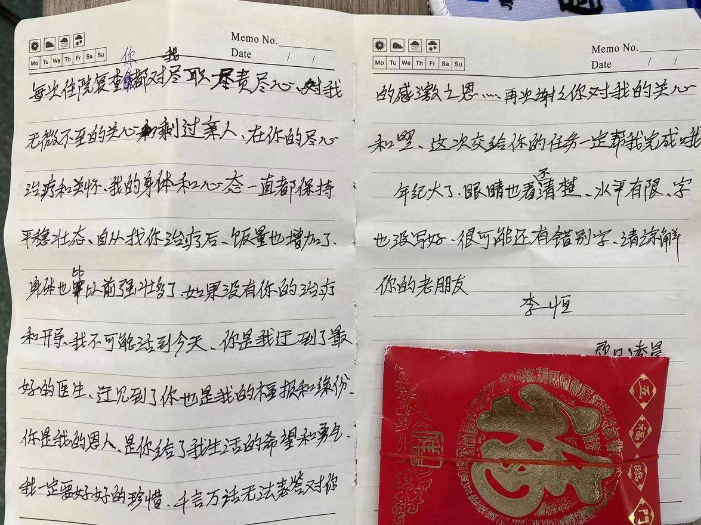 Memo No.
Date / /
Mo Tu We Th Fr Sa Su
你 我
每次住院复查都对尽职尽责尽心、对我
无微不至的关心剩过亲人、在你的尽心
治疗和关怀、我的身体和心态一直都保持
平稳壮态、自从找你治疗后、饭量也增加了、
身体也比以前强壮多了、如果没有你的治疗
和开导、我不可能活到今天、你是我迂到了最
好的医生、迂见到了你也是我的福报和缘份、
你是我的恩人、是你给了我生活的希望和勇气、
我一定要好好的珍惜、千言万语无法表答对你
Memo No.
Date / /
Mo Tu We Th Fr Sa Su
的感激之恩……再次谢谢你对我的关心
和 、这次交给你的任务一定帮我完成 我
年纪大了、眼睛也看还清楚、水平有限、字
也没写好、很可能还有错别字、请谅解
你的老朋友
李恒
五
福
临
门